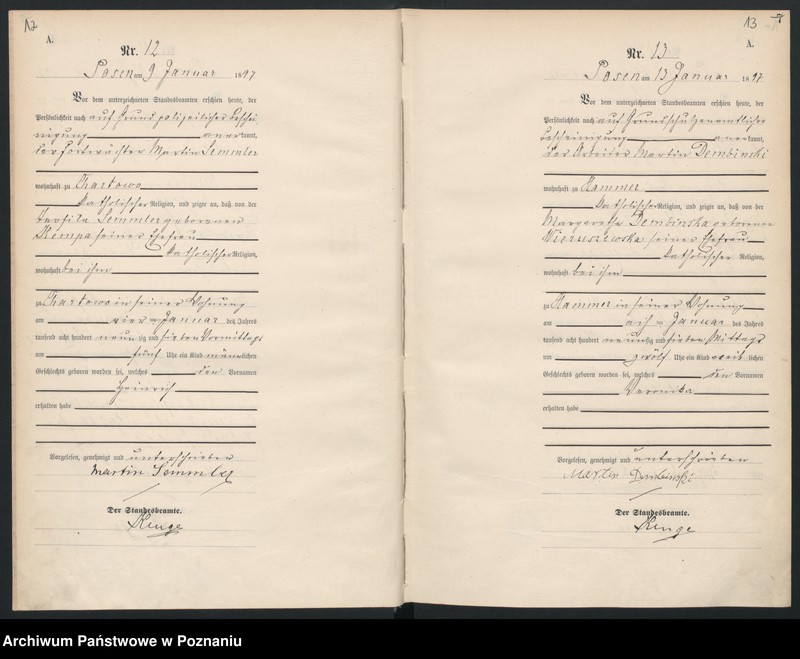 12
A.
Nr. 12
Posen am 9 Januar 1897
Vor dem unterzeichneten Standesbeamten erschien heute, der
Persönlichkeit nach auf Grund polizeilicher Beschei
nigung anerkannt,
der Forstwächter Martin Semmler
wohnhaft zu Chartowo
katholischer Religion, und zeigte an, daß von der
Semmler geborenen
Kempa seiner Ehefrau
katholischer Religion,
wohnhaft bei ihm
zu Chartowo in seiner Wohnung
am vier Januar des Jahres
tausend acht hundert neunzig und sieben Vormittags
um fünf Uhr ein Kind männlichen
Geschlechts geboren worden sei, welches den Vornamen
Heinrich
erhalten habe
Vorgelesen, genehmigt und unterschrieben
Martin Semmler
Der Standesbeamte.
Kenge
13
7
A.
Nr. 13
Posen am 13 Januar 1897
Vor dem unterzeichneten Standesbeamten erschien heute, der
Persönlichkeit nach auf Grund schutzamtlicher
Bescheinigung anerkannt,
der Arbeiter Martin Dembinski
wohnhaft zu Hammer
katholischer Religion, und zeigte an, daß von der
Margaretha Dembinska geborenen
Wieruszewska seiner Ehefrau
katholischer Religion,
wohnhaft bei ihm
zu Hammer in seiner Wohnung
am Januar des Jahres
tausend acht hundert neunzig und sieben Mittags
um zwölf Uhr ein Kind weiblichen
Geschlechts geboren worden sei, welches den Vornamen
Veronika
erhalten habe
Vorgelesen, genehmigt und unterschrieben
Martin Dembinski
Der Standesbeamte.
Kenge
Archiwum Państwowe w Poznaniu